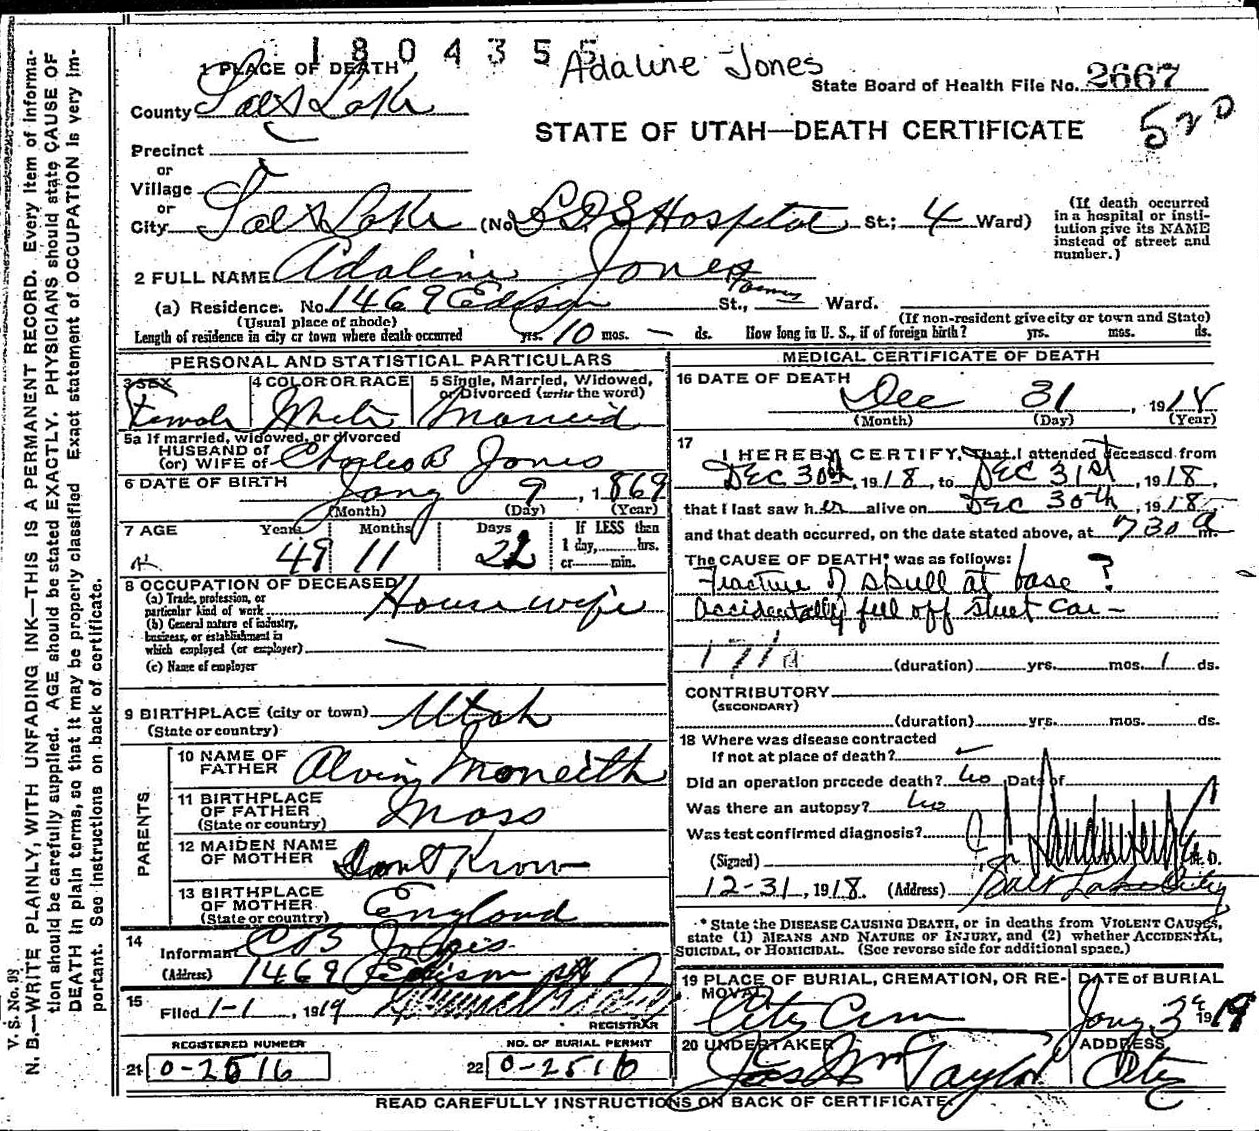 1804355
Adaline Jones
1 PLACE OF DEATH
State Board of Health File No. 2667
County Salt Lake
STATE OF UTAH—DEATH CERTIFICATE
Precinct
or
Village
or
City Salt Lake (No. L.D.S Hospital St.; 4 Ward)
(If death occurred in a hospital or insti-
tution give its NAME
instead of street and
number.)
2 FULL NAME Adaline Jones
(a) Residence. No. 1469 Edison St., Ward.
(Usual place of abode) (If non-resident give city or town and State)
Length of residence in city or town where death occurred yrs. 10 mos. — ds. How long in U. S., if of foreign birth? yrs. mos. ds.
PERSONAL AND STATISTICAL PARTICULARS
3 SEX Female
4 COLOR OR RACE White
5 Single, Married, Widowed,
or Divorced (write the word)
Married
5a If married, widowed, or divorced
HUSBAND of
(or) WIFE of Charles B Jones
6 DATE OF BIRTH Jany 9, 1869
(Month) (Day) (Year)
7 AGE Years Months Days If LESS than
49 11 22 1 day, hrs.
or min.
8 OCCUPATION OF DECEASED
(a) Trade, profession, or
particular kind of work Housewife
(b) General nature of industry,
business, or establishment in
which employed (or employer) —
(c) Name of employer
9 BIRTHPLACE (city or town) Utah
(State or country)
PARENTS
10 NAME OF
FATHER Alvin Moneith
11 BIRTHPLACE
OF FATHER Mass
(State or country)
12 MAIDEN NAME
OF MOTHER Dont Know
13 BIRTHPLACE
OF MOTHER England
(State or country)
14
Informant C B Jones
(Address) 1469 Edison
15
Filed 1-1, 1919
REGISTRAR
REGISTERED NUMBER
21 0-2516
NO. OF BURIAL PERMIT
22 0-2516
MEDICAL CERTIFICATE OF DEATH
16 DATE OF DEATH Dec 31, 1918
(Month) (Day) (Year)
17
I HEREBY CERTIFY, That I attended deceased from
DEC 30th, 1918, to DEC 31st, 1918,
that I last saw her alive on DEC 30th, 1918
and that death occurred, on the date stated above, at 730 a m.
The CAUSE OF DEATH* was as follows:
Fracture of skull at base ?
Accidentally fell off street car —
171a (duration) yrs. mos. 1 ds.
CONTRIBUTORY
(SECONDARY)
(duration) yrs. mos. ds.
18 Where was disease contracted
if not at place of death?
Did an operation precede death? no Date of
Was there an autopsy? no
Was test confirmed diagnosis?
(Signed) M. D.
12-31, 1918. (Address) Salt Lake City
* State the DISEASE CAUSING DEATH, or in deaths from VIOLENT CAUSES,
state (1) MEANS AND NATURE OF INJURY, and (2) whether ACCIDENTAL,
SUICIDAL, or HOMICIDAL. (See reverse side for additional space.)
19 PLACE OF BURIAL, CREMATION, OR RE-
MOVAL City Cem
DATE of BURIAL
Jany 3d 1919
20 UNDERTAKER
Jos Wm Taylor
ADDRESS
City
READ CAREFULLY INSTRUCTIONS ON BACK OF CERTIFICATE.
V. S. No. 98
N. B.—WRITE PLAINLY, WITH UNFADING INK—THIS IS A PERMANENT RECORD. Every item of informa-
tion should be carefully supplied. AGE should be stated EXACTLY. PHYSICIANS should state CAUSE OF
DEATH in plain terms, so that it may be properly classified Exact statement of OCCUPATION is very im-
portant. See instructions on back of certificate.